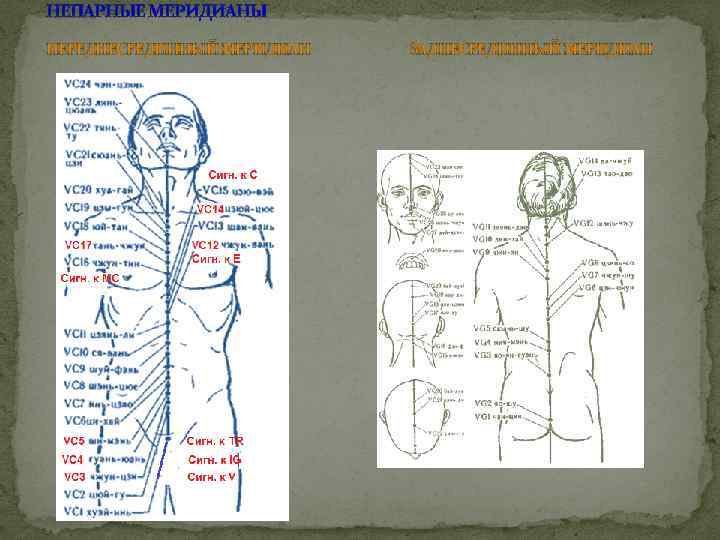 НЕПАРНЫЕ МЕРИДИАНЫ
ПЕРЕДНЕСРЕДИННЫЙ МЕРИДИАН
ЗАДНЕСРЕДИННЫЙ МЕРИДИАН
VC24 чэн-цзян
VC23 лянь-
цюань
VC22 тянь-
ту
VC21 сюань-
цзи
Сигн. к C
VC20 хуа-гай
VC15 цзю-вэй
VC19 цзы-гун
VC14 цзюй-цюе
VC18 юй-тан
VC13 шан-вань
VC17 тань-чжун
VC12 чжун-вань
Сигн. к E
VC16 чжун-тин
Сигн. к MC
VC11 цзянь-ли
VC10 ся-вань
VC9 шуй-фэнь
VC8 шэнь-цюе
VC7 инь-цзяо
VC6 ци-хай
VC5 ши-мэнь
Сигн. к TR
VC4 гуань-юань
Сигн. к IG
VC3 чжун-цзи
Сигн. к V
VC2 цюй-гу
VC1 хуэй-инь
VG14 да-чжуй
VG13 тао-дао
VG12 шэнь-чжу
VG11 шэнь-дао
VG10 лин-тай
VG9 чжи-ян
VG8 цзинь-со
VG7 чжун-шу
VG6 цзи-чжун
VG5 сюань-шу
VG4 мин-мэнь
VG3 яо-ян-гуань
VG2 яо-шу
VG1 чан-цян